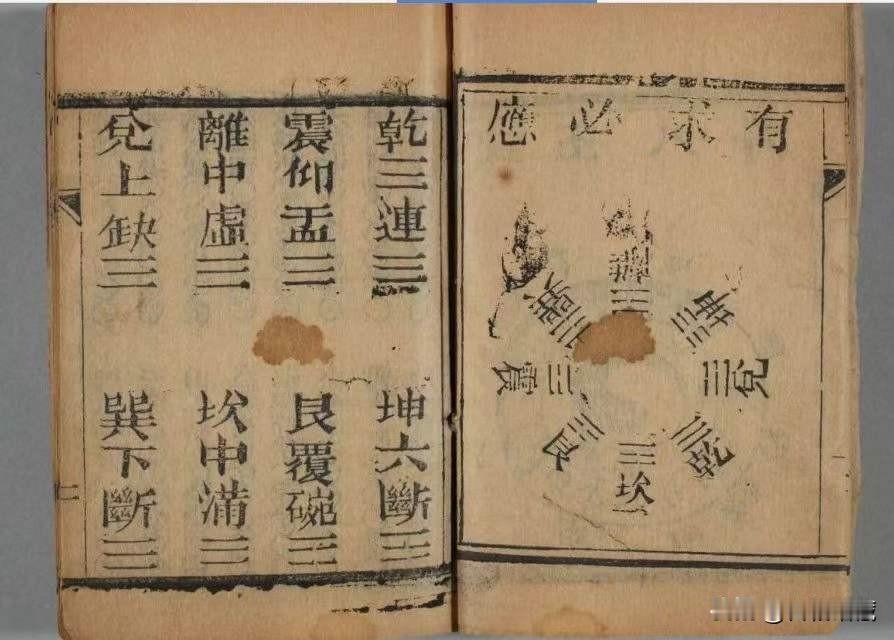 有求必應
離
坤
兌
乾
坎
艮
震
巽
乾三連
坤六斷
震仰盂
艮覆碗
離中虛
坎中滿
兌上缺
巽下斷